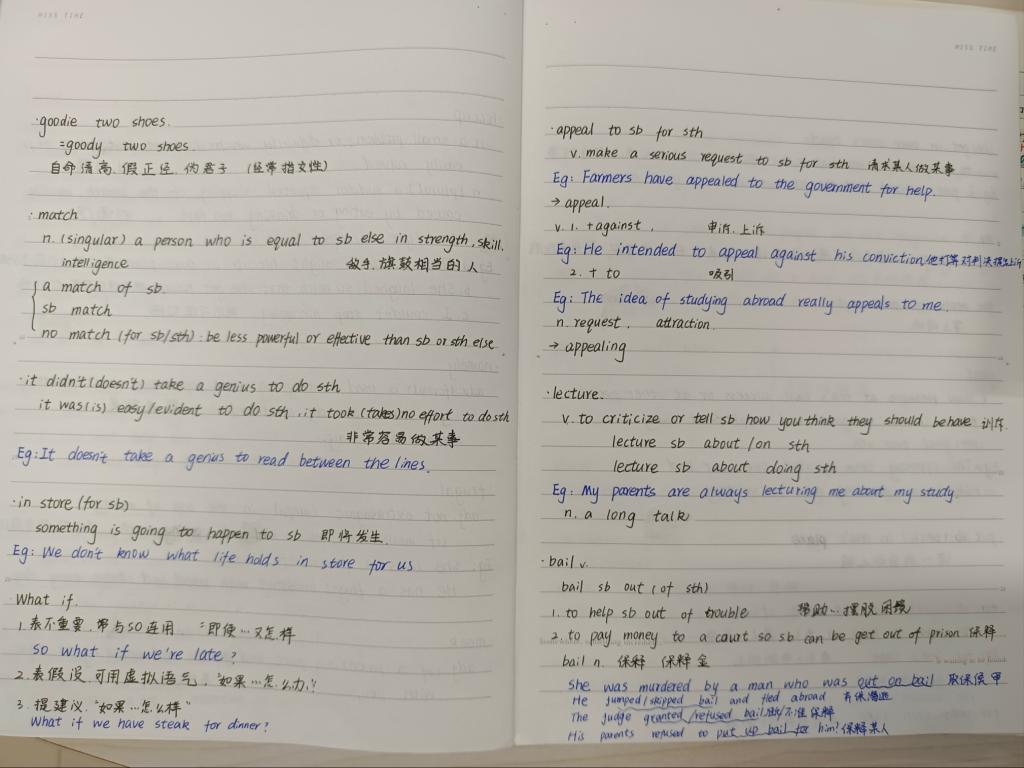 MISS TIME
·goodie two shoes.
=goody two shoes.
自命清高.假正经.伪君子 (经常指女性)
·match
n.(singular) a person who is equal to sb else in strength, skill,
intelligence 敌手.旗鼓相当的人
a match of sb.
sb match
no match (for sb/sth): be less powerful or effective than sb or sth else.
·it didn't(doesn't) take a genius to do sth
it was(is) easy/evident to do sth, it took (takes) no effort to do sth
非常容易做某事
Eg: It doesn't take a genius to read between the lines.
·in store (for sb)
something is going to happen to sb 即将发生.
Eg: We don't know what life holds in store for us
What if.
1.表不重要.常与SO连用 "即使…又怎样
so what if we're late?
2.表假设.可用虚拟语气."如果…怎么办"
3.提建议."如果…怎么样"
What if we have steak for dinner?
MISS TIME
·appeal to sb for sth
v. make a serious request to sb for sth 请求某人做某事
Eg: Farmers have appealed to the government for help.
→ appeal.
v. 1. + against. 申诉.上诉
Eg: He intended to appeal against his conviction.他打算对判决提出上诉
2. + to 吸引
Eg: The idea of studying abroad really appeals to me.
n. request. attraction.
→ appealing
·lecture.
v. to criticize or tell sb how you think they should behave 训斥
lecture sb about/on sth
lecture sb about doing sth
Eg: My parents are always lecturing me about my study
n. a long talk
·bail v.
bail sb out (of sth)
1. to help sb out of trouble 帮助…摆脱困境
2. to pay money to a court so sb can be get out of prison 保释
bail n. 保释 保释金
She was murdered by a man who was out on bail 取保候审
He jumped/skipped bail and fled abroad 弃保潜逃
The judge granted/refused bail.批/不准保释
His parents refused to put up bail for him! 保释某人